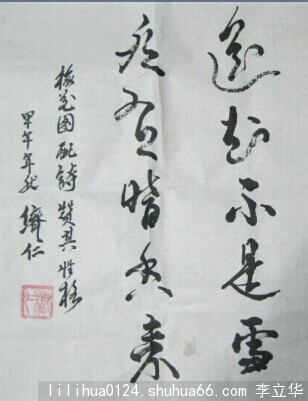 遥知不是雪
为有暗香来
梅花图配詩赞其性格
甲午年秋 仁
lilihua0124.shuhua66.com 李立华